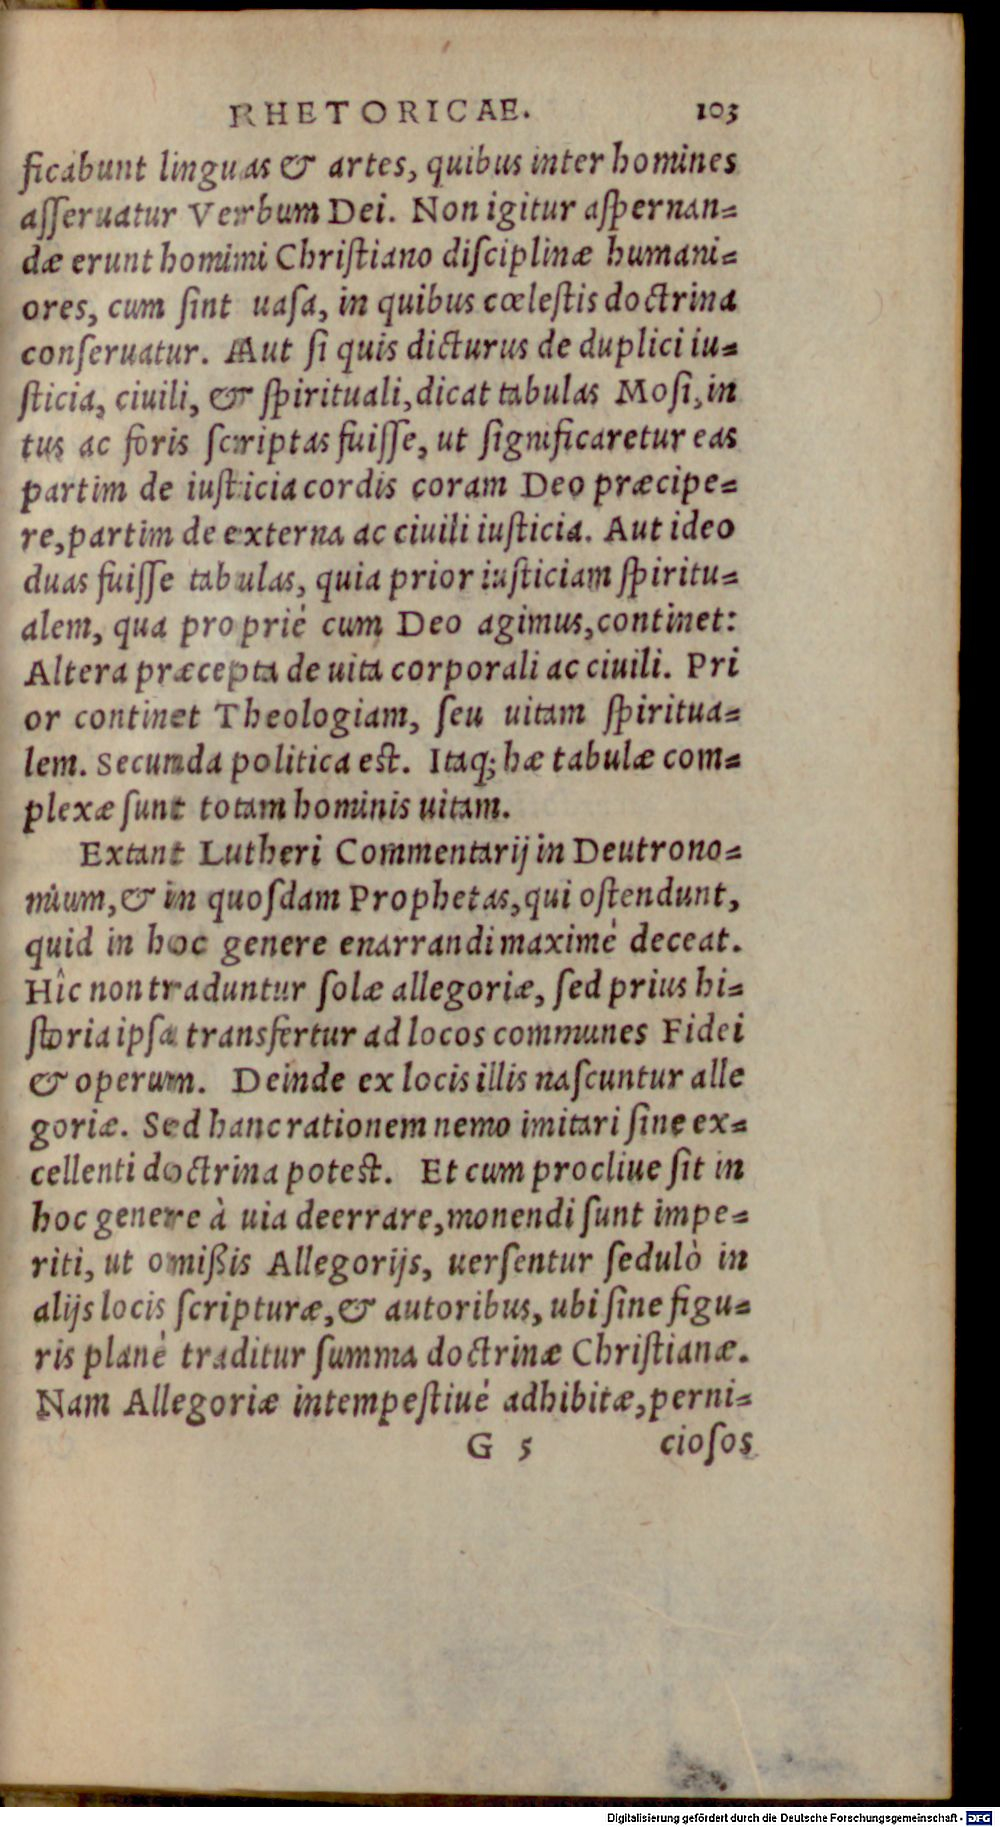 RHETORICAE. 103
ficabunt linguas & artes, quibus inter homines
aſſeruatur Verbum Dei. Non igitur aſpernan=
dæ erunt homini Chriſtiano diſciplinæ humani=
ores, cum ſint uaſa, in quibus cœleſtis doctrina
conſeruatur. Aut ſi quis dicturus de duplici iu=
ſticia, ciuili, & ſpirituali, dicat tabulas Moſi, in
tus ac foris ſcriptas fuiſſe, ut ſignificaretur eas
partim de iuſticia cordis coram Deo præcipe=
re, partim de externa ac ciuili iuſticia. Aut ideo
duas fuiſſe tabulas, quia prior iuſticiam ſpiritu=
alem, qua propriè cum Deo agimus, continet:
Altera præcepta de uita corporali ac ciuili. Pri
or continet Theologiam, ſeu uitam ſpiritua=
lem. Secunda politica eſt. Itaq; hæ tabulæ com=
plexæ ſunt totam hominis uitam.
Extant Lutheri Commentarij in Deutrono=
mium, & in quoſdam Prophetas, qui oſtendunt,
quid in hoc genere enarrandi maximè deceat.
Hîc non traduntur ſolæ allegoriæ, ſed prius hi=
ſtoria ipſa transfertur ad locos communes Fidei
& operum. Deinde ex locis illis naſcuntur alle
goriæ. Sed hanc rationem nemo imitari ſine ex=
cellenti doctrina poteſt. Et cum procliue ſit in
hoc genere à uia deerrare, monendi ſunt impe=
riti, ut omißis Allegorijs, uerſentur ſedulò in
alijs locis ſcripturæ, & autoribus, ubi ſine figu=
ris planè traditur ſumma doctrinæ Chriſtianæ.
Nam Allegoriæ intempeſtiuè adhibitæ, perni=
G 5 cioſos
Digitalisierung gefördert durch die Deutsche Forschungsgemeinschaft - DFG